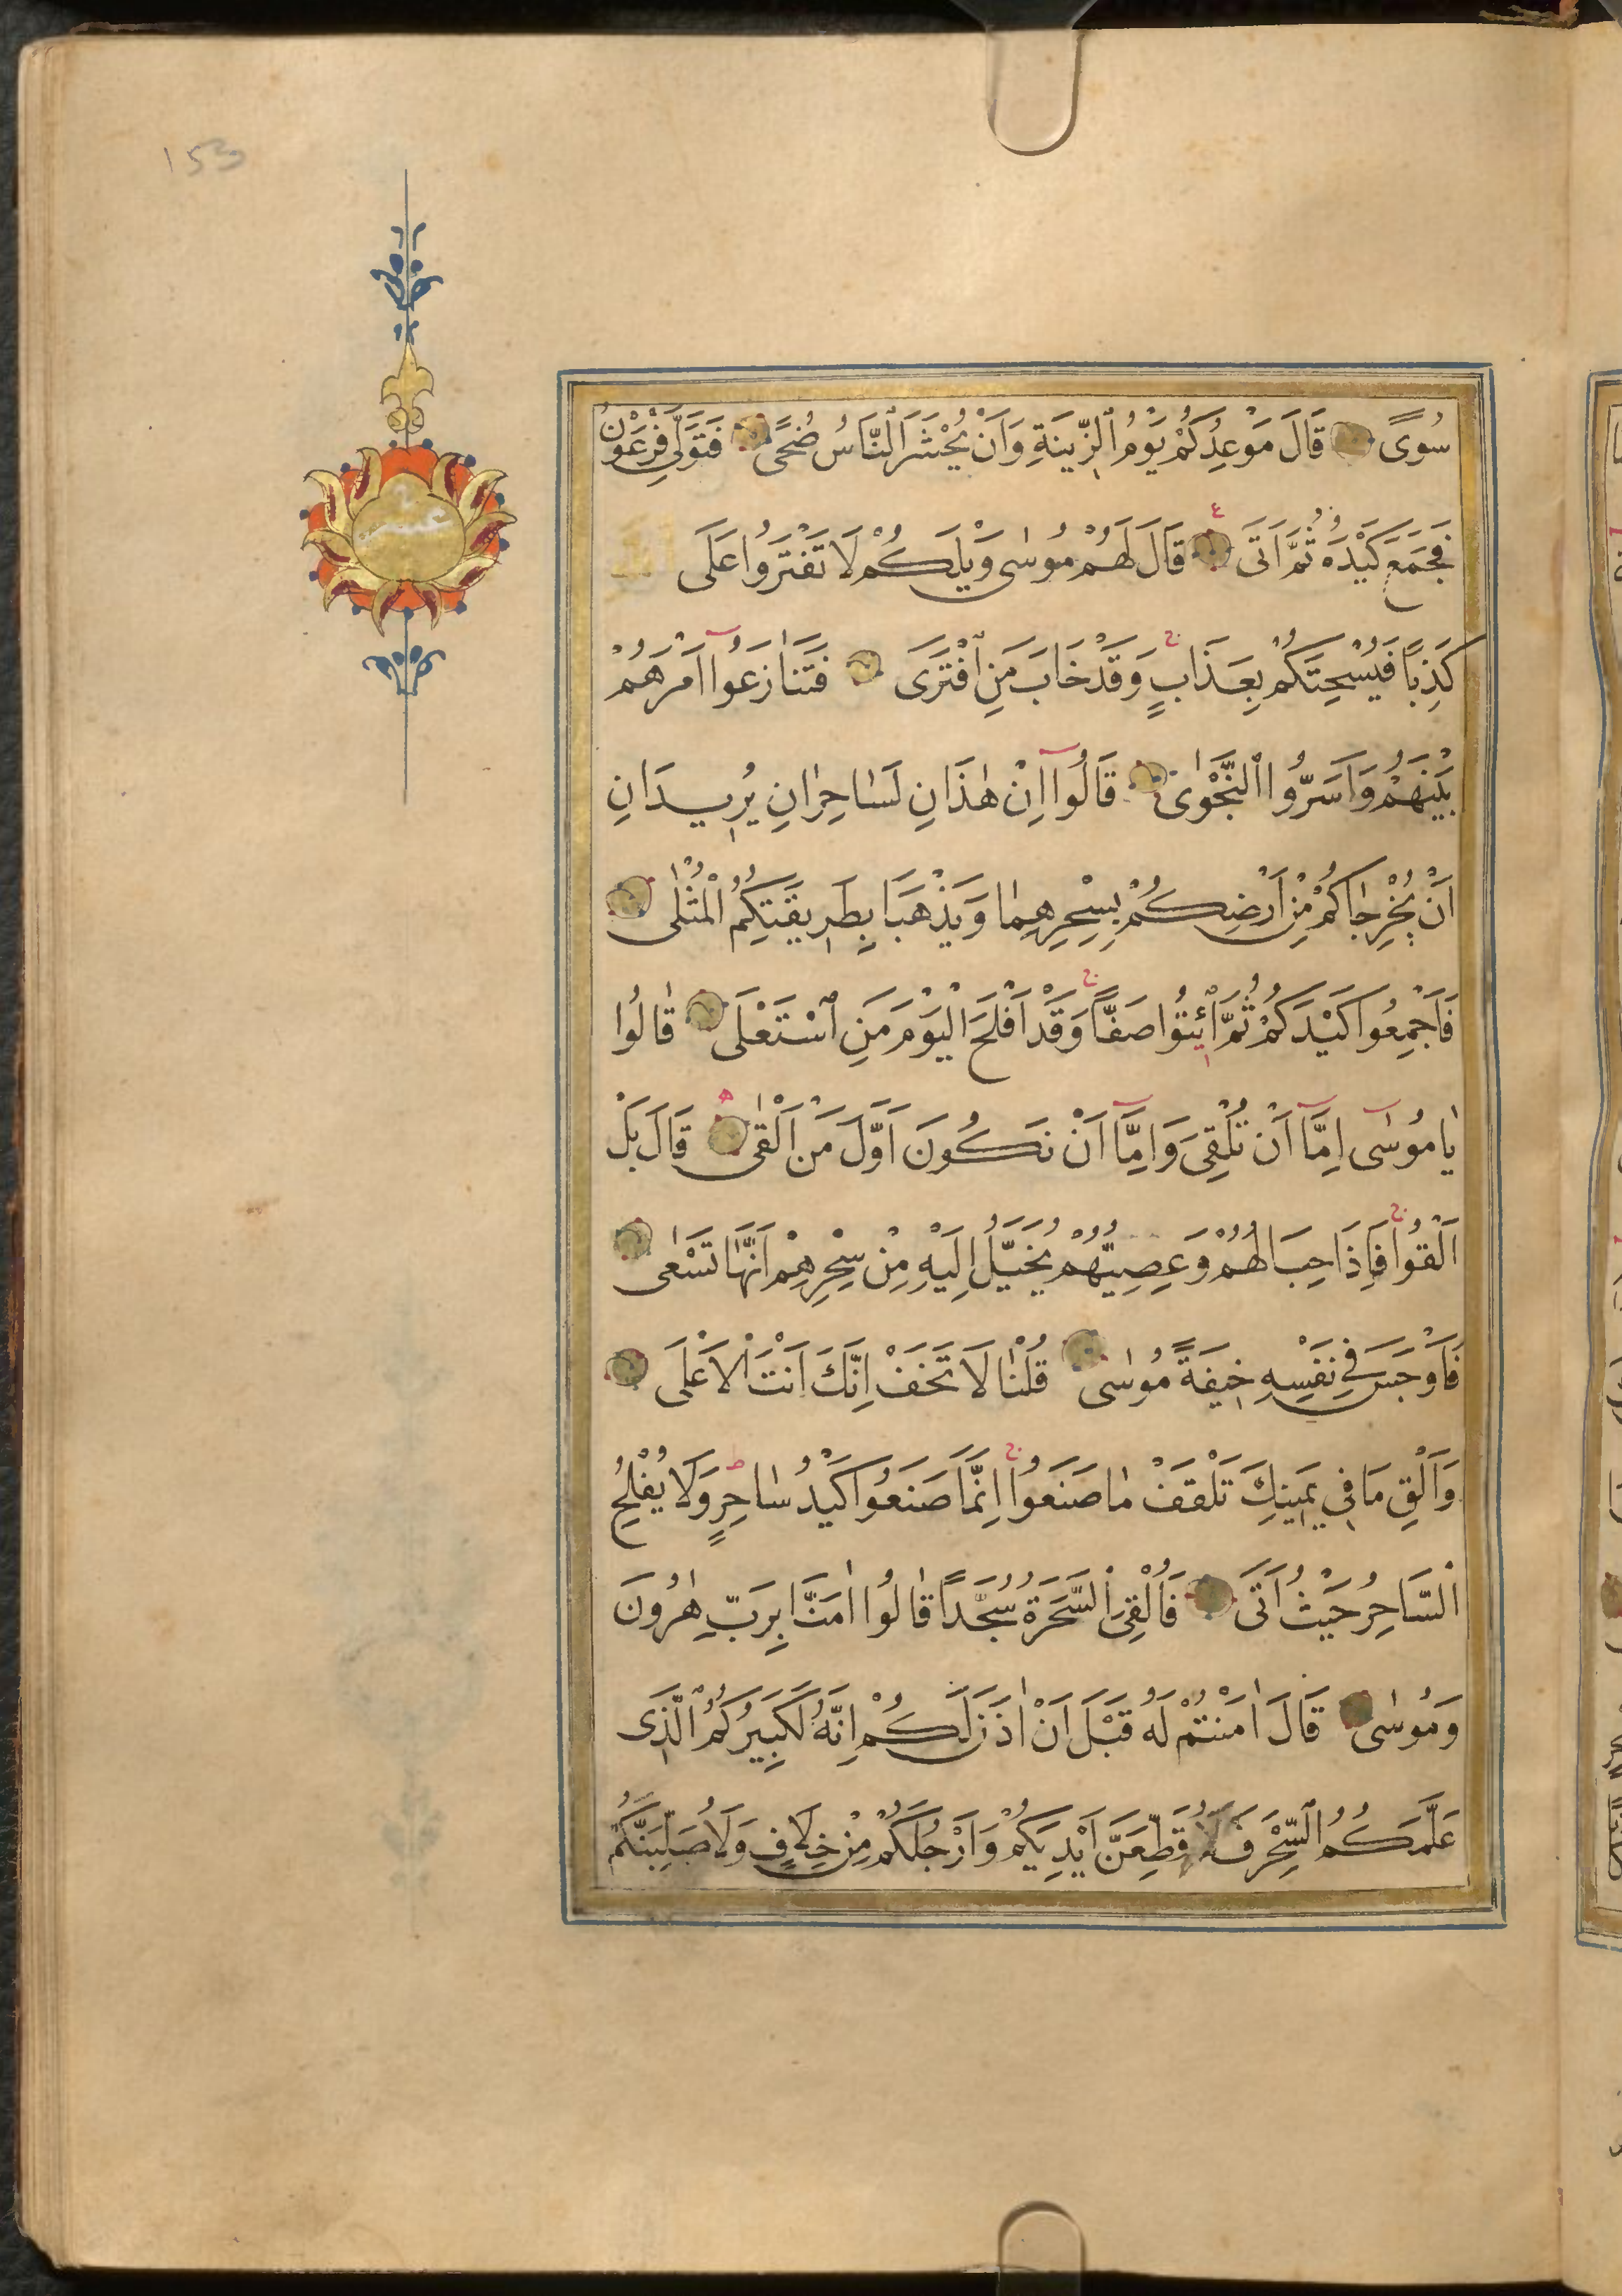 153
سُوًى قَالَ مَوْعِدُكُمْ يَوْمُ ٱلزِّينَةِ وَاَنْ يُحْشَرَ ٱلنَّاسُ ضُحًى فَتَوَلّٰى فِرْعَوْنُ
فَجَمَعَ كَيْدَهُ ثُمَّ اَتَى قَالَ لَهُمْ مُوسٰى وَيْلَكُمْ لَا تَفْتَرُوا عَلَى اللّٰه
كَذِبًا فَيُسْحِتَكُمْ بِعَذَابٍ وَقَدْ خَابَ مَنِ ٱفْتَرَى فَتَنٰازَعُوٓا اَمْرَهُمْ
بَيْنَهُمْ وَاَسَرُّوا ٱلنَّجْوٰى قَالُوٓا اِنْ هٰذَانِ لَسٰاحِرٰانِ يُرِيدَانِ
اَنْ يُخْرِجٰاكُمْ مِنْ اَرْضِكُمْ بِسِحْرِهِمٰا وَيَذْهَبَا بِطَرِيقَتِكُمُ الْمُثْلٰى
فَاَجْمِعُوا كَيْدَكُمْ ثُمَّ ٱئْتُوا صَفًّا وَقَدْ اَفْلَحَ الْيَوْمَ مَنِ ٱسْتَعْلَى قٰالُوا
يٰا مُوسٰٓى اِمَّٓا اَنْ تُلْقِىَ وَاِمَّٓا اَنْ نَكُونَ اَوَّلَ مَنْ اَلْقٰى قَالَ بَلْ
اَلْقُوا فَاِذَا حِبَالُهُمْ وَعِصِيُّهُمْ يُخَيَّلُ اِلَيْهِ مِنْ سِحْرِهِمْ اَنَّهٰا تَسْعٰى
فَاَوْجَسَ فِي نَفْسِهِ خِيفَةً مُوسٰى قُلْنٰا لَا تَخَفْ اِنَّكَ اَنْتَ الْاَعْلَى
وَاَلْقِ مَا فِي يَمِينِكَ تَلْقَفْ مٰا صَنَعُوا اِنَّمَا صَنَعُوا كَيْدُ سٰاحِرٍ وَلَا يُفْلِحُ
السَّاحِرُ حَيْثُ اَتَى فَاُلْقِىَ السَّحَرَةُ سُجَّدًا قٰالُوا اٰمَنَّا بِرَبِّ هٰرُونَ
وَمُوسٰى قَالَ اٰمَنْتُمْ لَهُ قَبْلَ اَنْ اٰذَنَ لَكُمْ اِنَّهُ لَكَبِيرُكُمُ الَّذِى
عَلَّمَكُمُ السِّحْرَ فَلَاُقَطِّعَنَّ اَيْدِيَكُمْ وَاَرْجُلَكُمْ مِنْ خِلَافٍ وَلَاُصَلِّبَنَّكُمْ